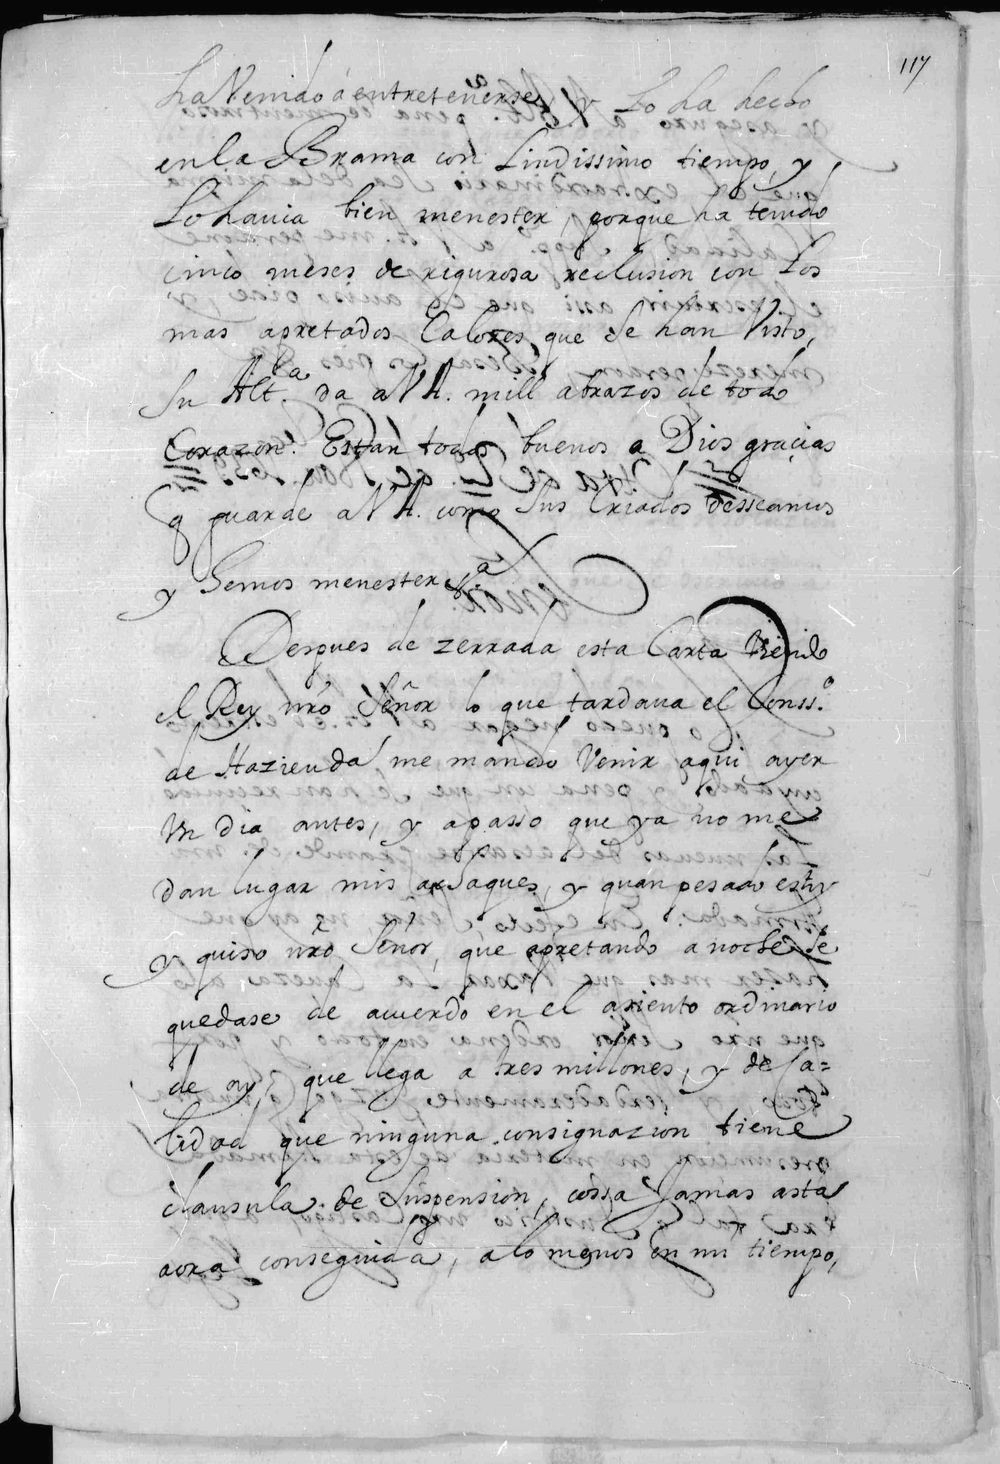 117
ha Venido á entretenerse, y Lo ha hecho
en la Brama con Lindissimo tiempo, y
Lo havia bien menester, porque ha tenido
cinco meses de rigurosa reclusion con Los
mas apretados Calores, que Se han Visto,
Su Alt.ª da a V A. mill abrazos de todo
Corazon. Están todos buenos a Dios graçias
q guarde a V A. como Sus Criados desseamos
y hemos menester &ª
Despues de zerrada esta Carta Viendo
el Rey nrõ Señor lo que tardaua el Conss.º
de Hazienda, me mando Venir aqui ayer
Vn dia antes, y a passo que ya no me
dan lugar mis achaques, y quan pesado estoy
y quiso nrõ Señor, que apretando a noche Se
quedase de acuerdo en el asiento ordinario
de oy, que llega a tres millones, y de Ca=
lidad que ninguna consignazion tiene
clausula de Suspension, cossa Jamas asta
aora conseguida, a lo menos en mi tiempo,